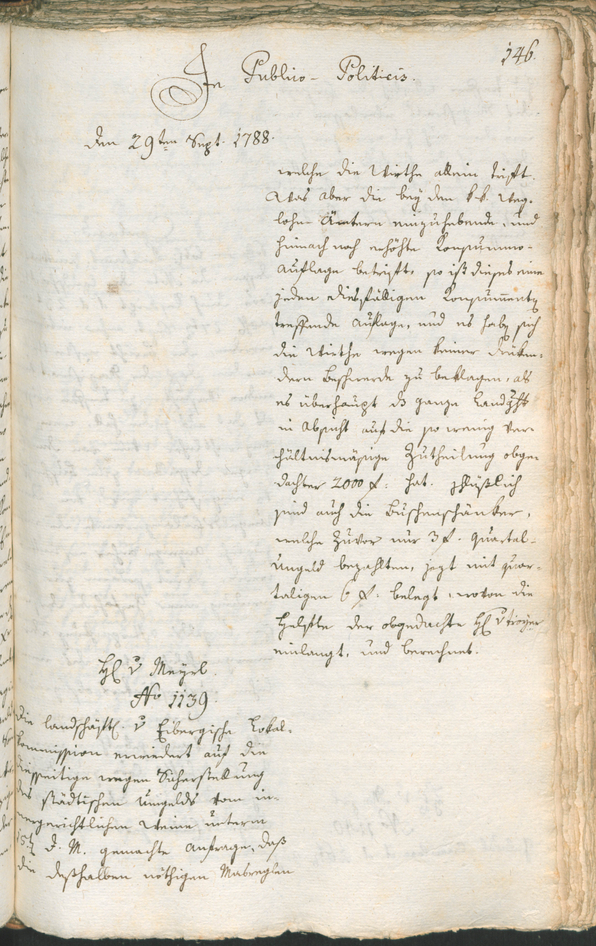 146.
In Publico-Politicis.
den 29ten Sept. 1788.
welche die Wirthe allein trift.
Was aber die bey den k:k. Weg-
lohn Ämtern einzuhebende, und
hienach noch erhöhte Konsummo-
Auflage betrift, so ist dieses eine
jeden diesfälligen Konsumenten
treffende Auflage, und es haben sich
die Wirthe wegen keiner
dern Beschwerde zu beklagen, als
es überhaupt die ganze
in Absicht auf die so wenig ver-
hältnismäsige Zutheilung obge-
dachter 2000 f: hat. Schlüßlich
sind auch die Buschenschänker,
welche zuvor nur 3 f. quartal-
Ungeld bezahlten, jezt mit quar-
taligen 6 f. belegt, wovon die
Helfte der obgedachte H: v Troyer
einlangt, und berechnet.
H: v Mayrl.
No 1139.
Die landschäftl: v Eibergische Lokal-
kommission erwiedert auf die
diesseitige wegen Sicherstellung
des städtischen Ungelds vom in-
nergerichtlichen Weine unterm
15ten d. M. gemachte Anfrage, daß
die deßhalben nöthigen Masreglen